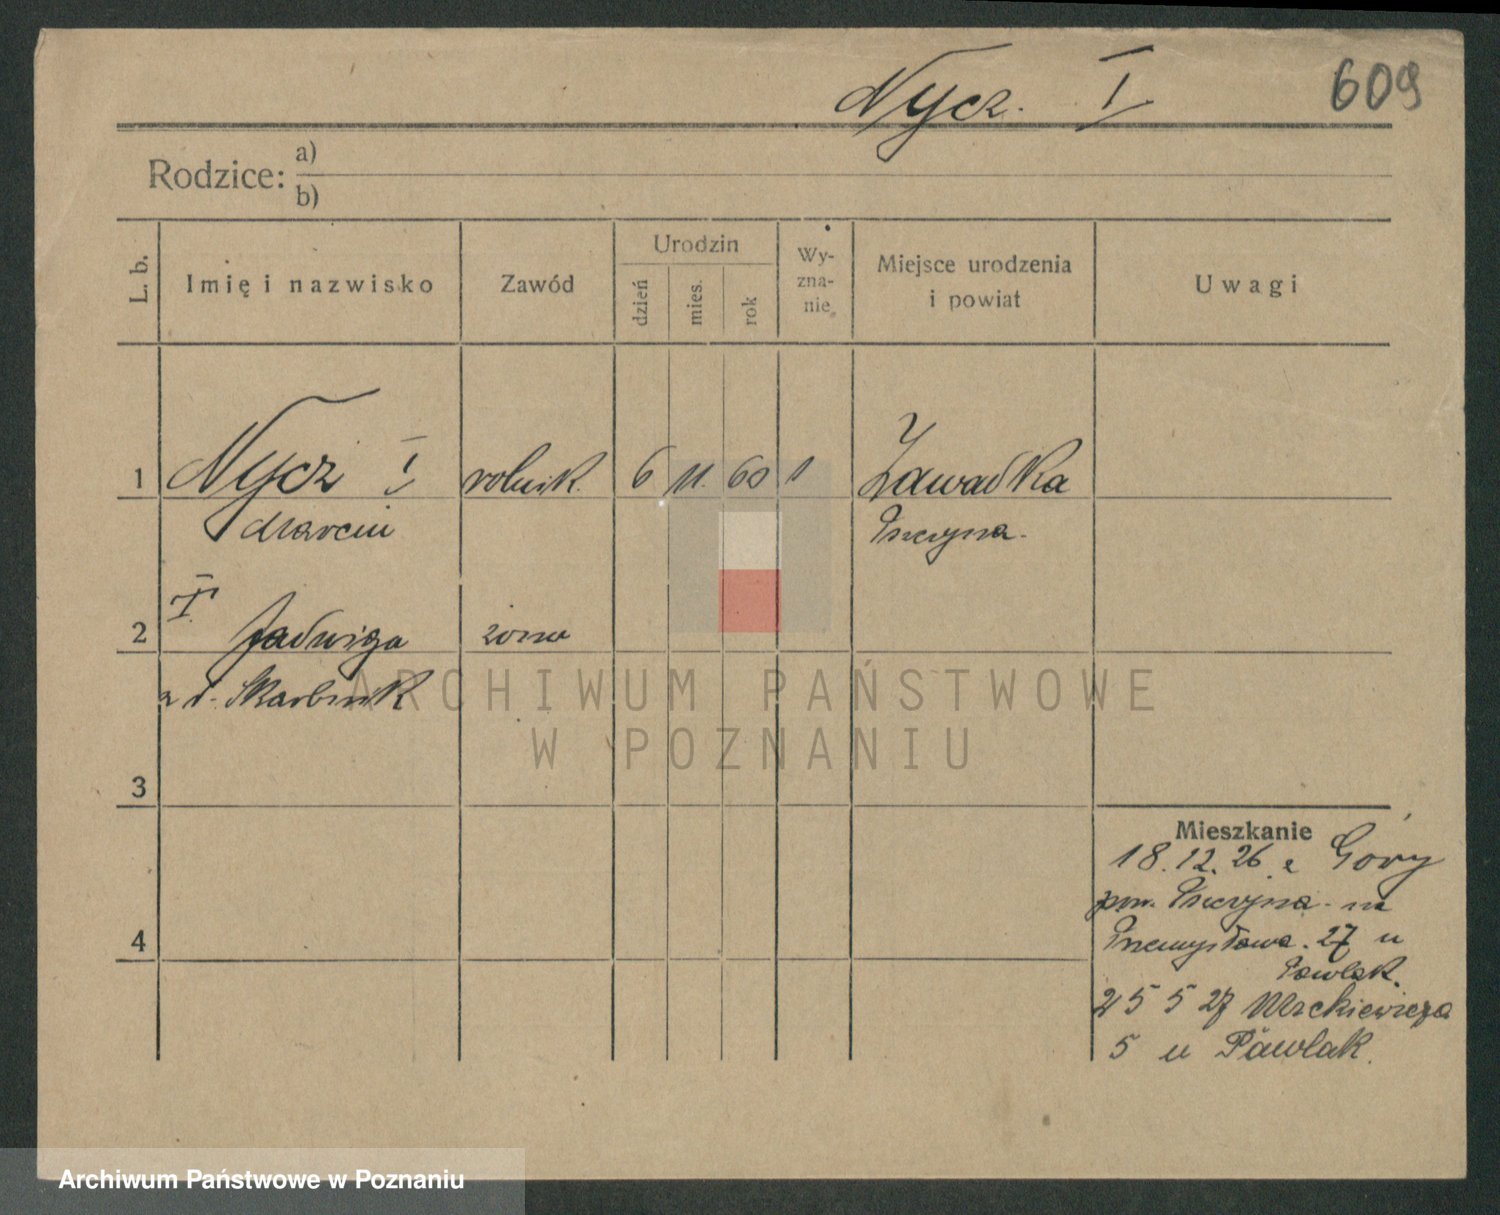 Nycz. I 609
Rodzice: a)
b)
L. b. Imię i nazwisko Zawód Urodzin dzień mies. rok Wyznanie Miejsce urodzenia i powiat Uwagi
1 Nycz I rolnik. 6 11. 60 1 Zawadka
Marcin Pszczyna.
I
2 Jadwiga żona
z d. Skarbnik
ARCHIWUM PAŃSTWOWE
W POZNANIU
3
Mieszkanie
18.12.26 z Góry
pow. Pszczyna - na
4 Przemysłowa. 27 u
Pawlak.
25 5 27 Mickiewicza
5 u Pawlak.
Archiwum Państwowe w Poznaniu